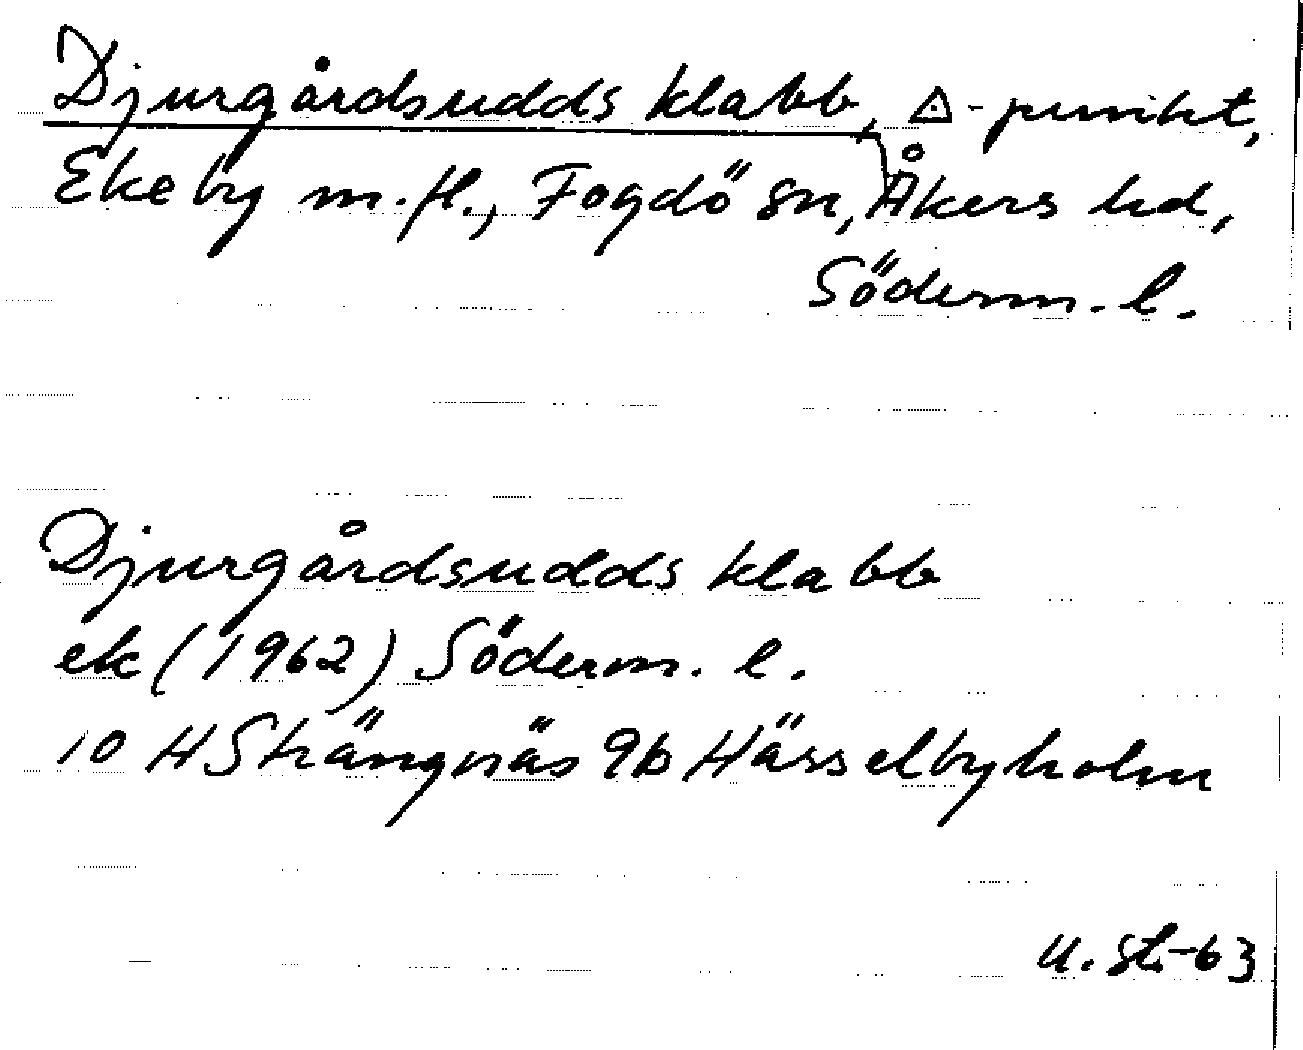 Djurgårdsudds klabb, △-punkt,
Ekeby m.fl., Fogdö sn, Åkers hd,
Söderm. l.
Djurgårdsudds klabb
ek (1962) Söderm. l.
10 H Strängnäs 9b Hässelbyholm
U. St-63